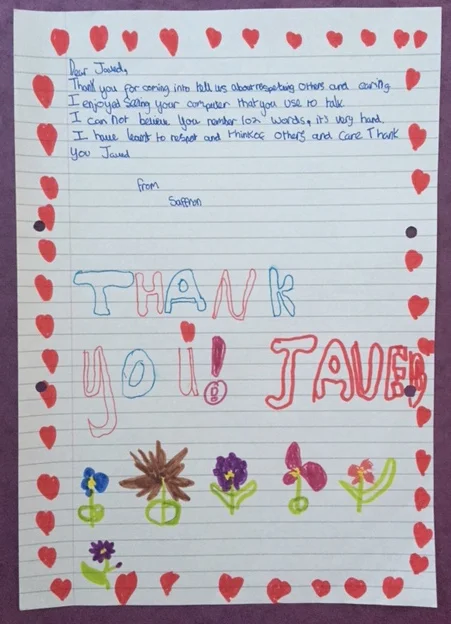 Dear Javed,
Thank you for coming into tell us about respeting others and caring
I enjoyed seeing your computer that you use to talk
I can not believe you rember 102 words, it's very hard.
I have learnt to respet and thinkof others and care Thank
you Javed
from
Saffron
THANK
you! JAVED